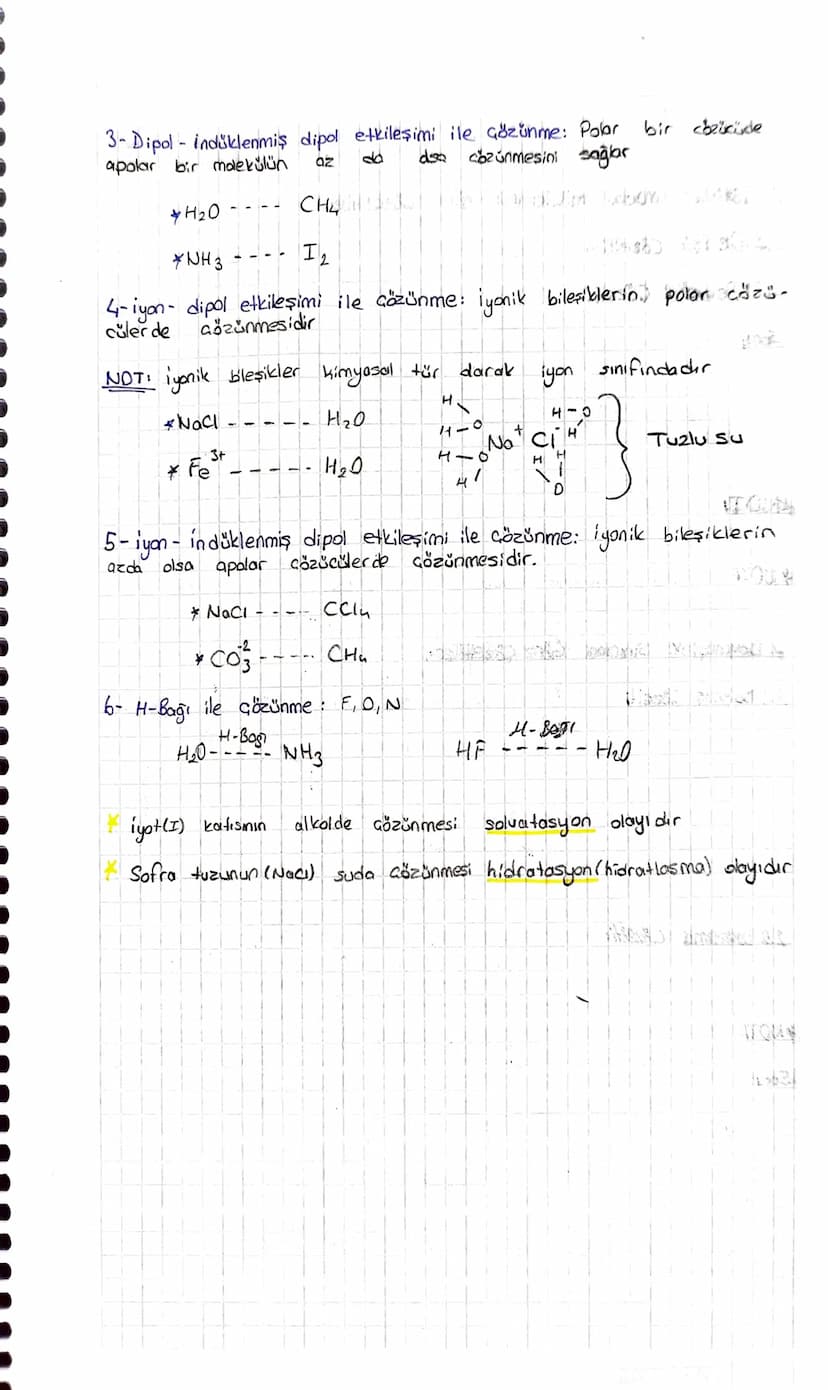 3- Dipol - indüklenmiş dipol etkileşimi ile çözünme: Polar bir çözücüde
apolar bir molekülün az da olsa çözünmesini sağlar
*H2O ---- CH4
*NH3 ---- I2
4-iyon- dipol etkileşimi ile çözünme: iyonik bileşiklerin polar çözü-
cülerde çözünmesidir
NOT: iyonik bileşikler kimyasal tür olarak iyon sınıfındadır
*NaCl ------ H2O
* Fe3+ ------ H2O
H H-O
H-O Na+ Cl- H
H-O H H
H O
Tuzlu su
5- iyon - indüklenmiş dipol etkileşimi ile çözünme: iyonik bileşiklerin
azda olsa apolar çözücülerde çözünmesidir.
* NaCl ----- CCl4
* CO3-2 ----- CH4
6- H-Bağı ile çözünme: F, O, N
H-Bağı
H2O ----- NH3
H-Bağı
HF ----- H2O
* iyot(I) katısının alkolde çözünmesi solvatasyon olayıdır
* Sofra tuzunun (NaCl) suda çözünmesi hidratasyon(hidratlaşma) olayıdır